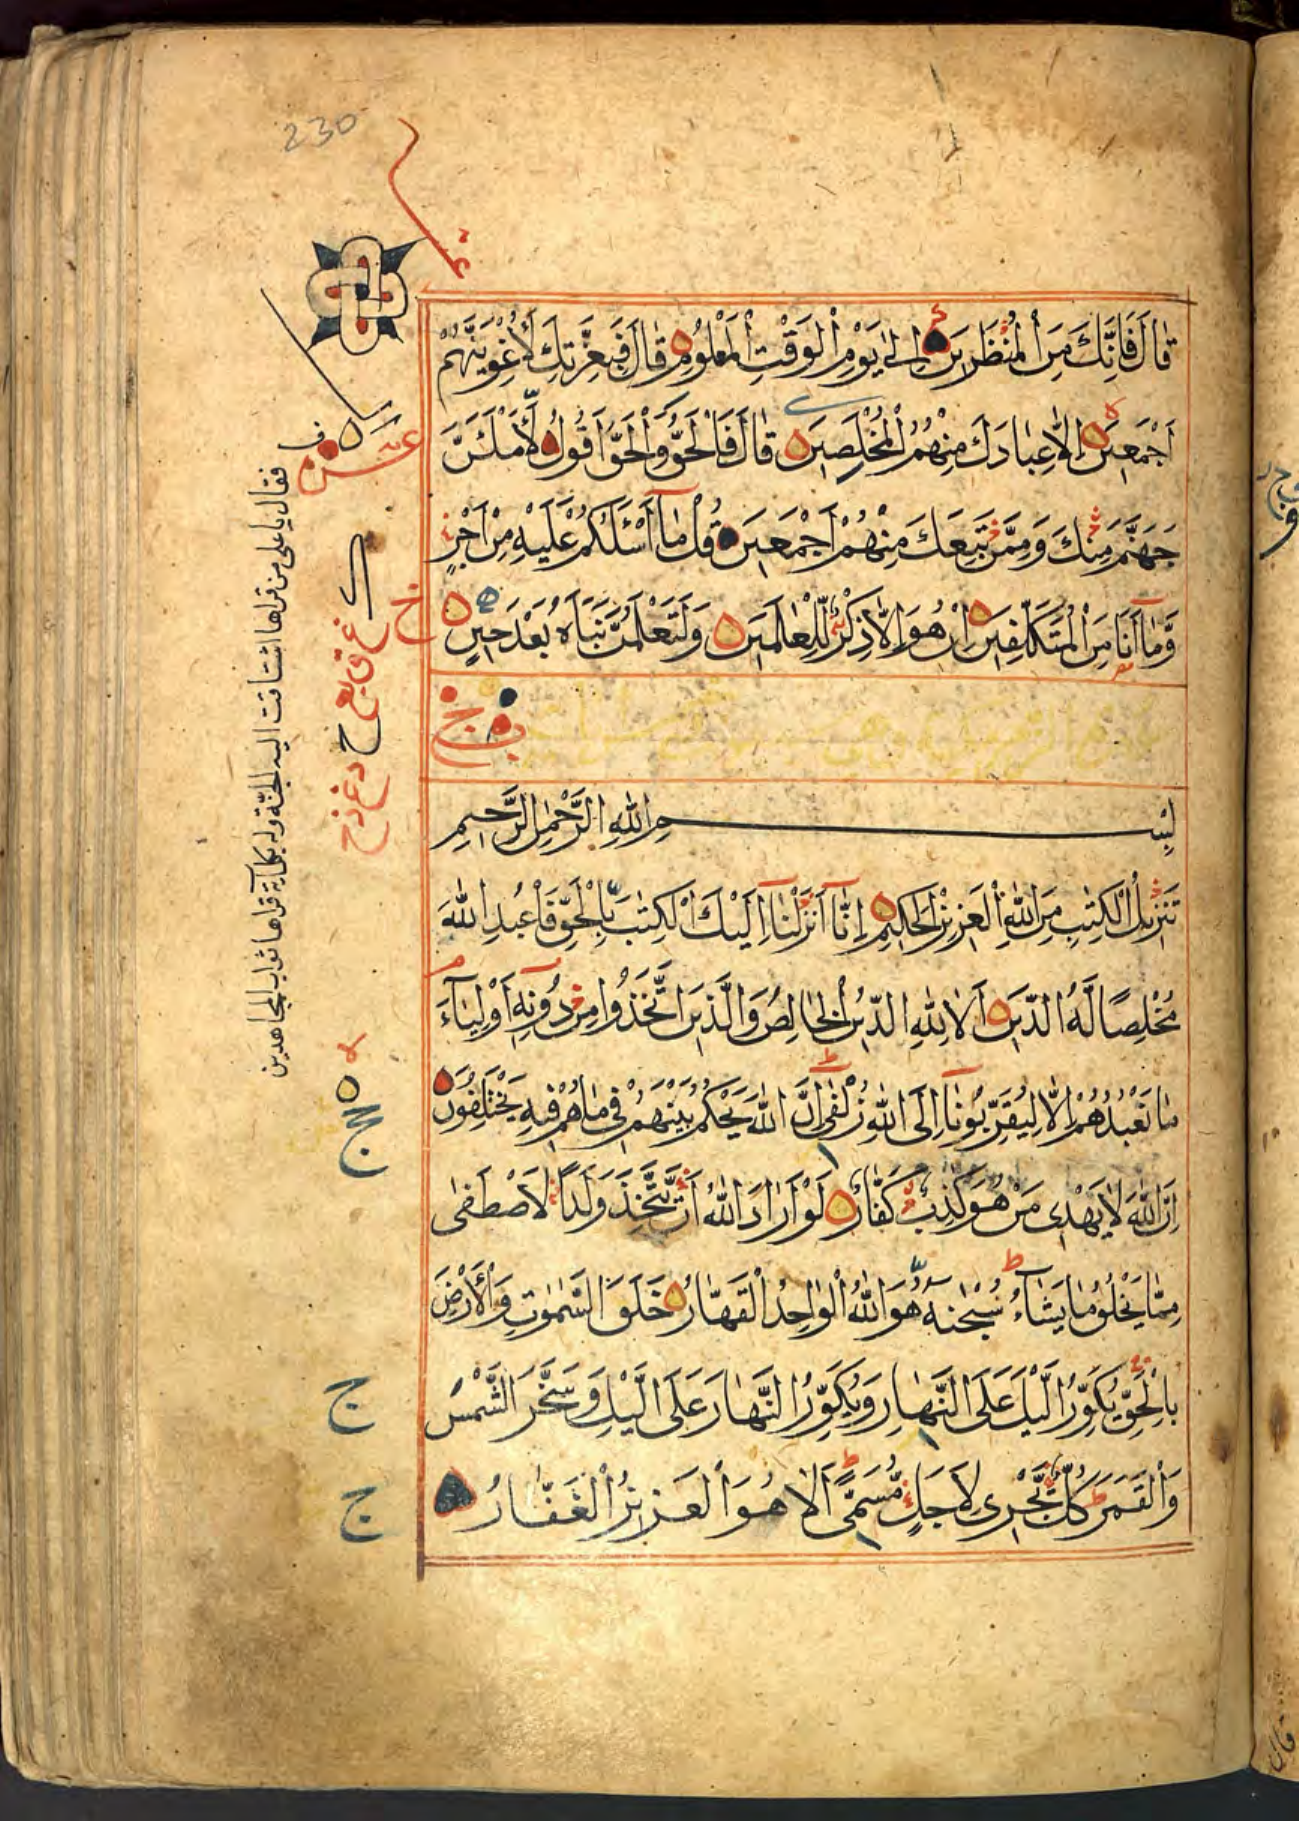 230
قَالَ فَاِنَّكَ مِنَ الْمُنْظَرِيْنَ اِلٰى يَوْمِ الْوَقْتِ الْمَعْلُوْمِ قَالَ فَبِعِزَّتِكَ لَاُغْوِيَنَّهُمْ
اَجْمَعِيْنَ اِلَّا عِبَادَكَ مِنْهُمُ الْمُخْلَصِيْنَ قَالَ فَالْحَقُّ وَالْحَقَّ اَقُوْلُ لَاَمْلَـَٔنَّ
جَهَنَّمَ مِنْكَ وَمِمَّنْ تَبِعَكَ مِنْهُمْ اَجْمَعِيْنَ قُلْ مَآ اَسْـَٔلُكُمْ عَلَيْهِ مِنْ اَجْرٍ
وَّمَآ اَنَا مِنَ الْمُتَكَلِّفِيْنَ اِنْ هُوَ اِلَّا ذِكْرٌ لِّلْعٰلَمِيْنَ وَلَتَعْلَمُنَّ نَبَاَهُ بَعْدَ حِيْنٍ
بِسْمِ اللّٰهِ الرَّحْمٰنِ الرَّحِيْمِ
تَنْزِيْلُ الْكِتٰبِ مِنَ اللّٰهِ الْعَزِيْزِ الْحَكِيْمِ اِنَّآ اَنْزَلْنَآ اِلَيْكَ الْكِتٰبَ بِالْحَقِّ فَاعْبُدِ اللّٰهَ
مُخْلِصًا لَّهُ الدِّيْنَ اَلَا لِلّٰهِ الدِّيْنُ الْخَالِصُ وَالَّذِيْنَ اتَّخَذُوْا مِنْ دُوْنِهٖٓ اَوْلِيَآءَ
مَا نَعْبُدُهُمْ اِلَّا لِيُقَرِّبُوْنَآ اِلَى اللّٰهِ زُلْفٰى اِنَّ اللّٰهَ يَحْكُمُ بَيْنَهُمْ فِيْ مَا هُمْ فِيْهِ يَخْتَلِفُوْنَ
اِنَّ اللّٰهَ لَا يَهْدِيْ مَنْ هُوَ كٰذِبٌ كَفَّارٌ لَوْ اَرَادَ اللّٰهُ اَنْ يَّتَّخِذَ وَلَدًا لَاصْطَفٰى
مِمَّا يَخْلُقُ مَا يَشَآءُ سُبْحٰنَهٗ هُوَ اللّٰهُ الْوَاحِدُ الْقَهَّارُ خَلَقَ السَّمٰوٰتِ وَالْاَرْضَ
بِالْحَقِّ يُكَوِّرُ الَّيْلَ عَلَى النَّهَارِ وَيُكَوِّرُ النَّهَارَ عَلَى الَّيْلِ وَسَخَّرَ الشَّمْسَ
وَالْقَمَرَ كُلٌّ يَّجْرِيْ لِاَجَلٍ مُّسَمًّى اَلَا هُوَ الْعَزِيْزُ الْغَفَّارُ
فقال يا على من قراها اشتاقت اليه الجنة وله بكل اية قراها ثواب المجاهدين
ج
ج